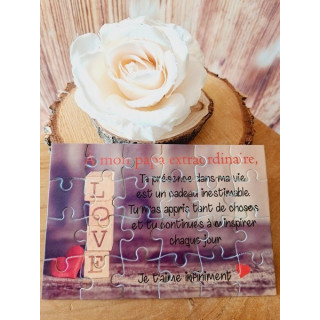 À mon papa extraordinaire,
Ta présence dans ma vie
est un cadeau inestimable
Tu m'as appris tant de choses
et tu continues à m'inspirer
chaque jour
Je t'aime infiniment
LOVE